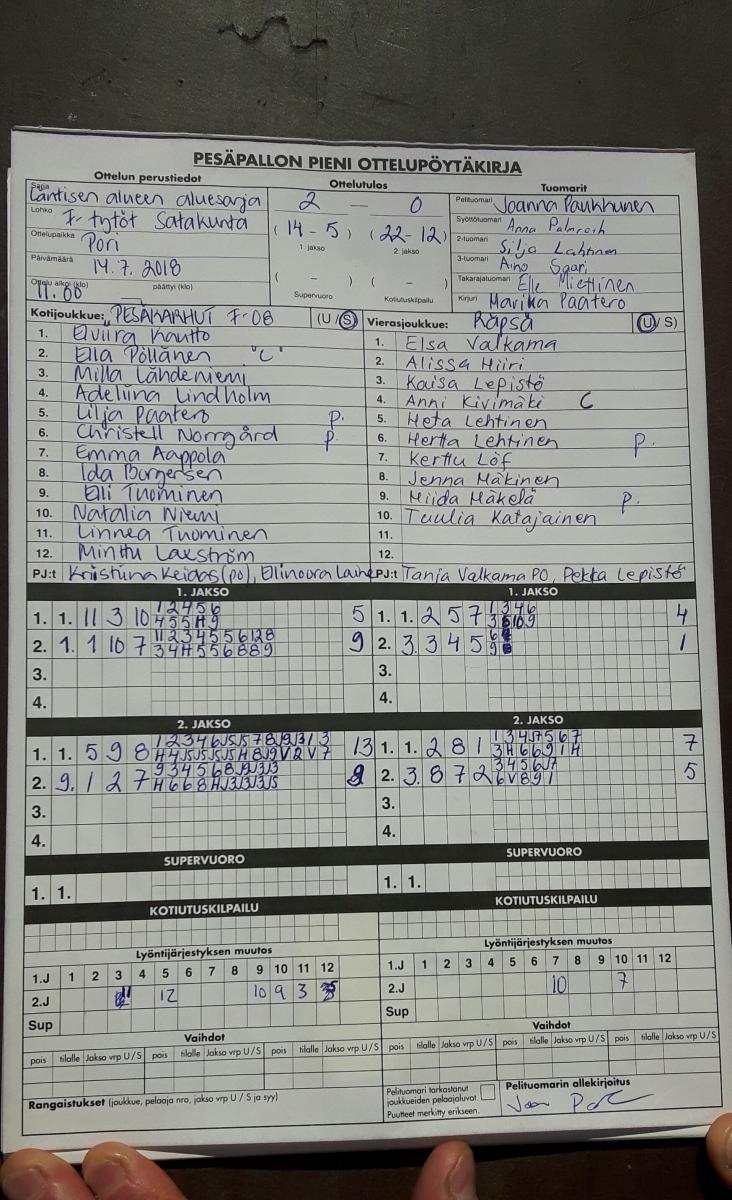 PESÄPALLON PIENI OTTELUPÖYTÄKIRJA
Ottelun perustiedot
Ottelutulos
Tuomarit
Sarja Läntisen alueen aluesarja
Lohko F-tytöt Satakunta
Ottelupaikka Pori
Päivämäärä 14.7.2018
Ottelu alkoi (klo) 11.00 päättyi (klo)
2 — 0
(14 - 5) (22-12)
1. jakso 2. jakso
( - ) ( - )
Supervuoro Kotiutuskilpailu
Pelituomari Joanna Paukkunen
Syöttötuomari Anna Palmroth
2-tuomari Silja Lahtinen
3-tuomari Aino Saari
Takarajatuomari Elle Miettinen
Kirjuri Marika Paatero
Kotijoukkue: PESÄKARHUT F-08 (U/S)
1. Elviira Kautto
2. Ella Pöllänen "C"
3. Milla Lähdeniemi
4. Adeliina Lindholm
5. Lilja Paatero p.
6. Christell Norrgård p.
7. Emma Aappola
8. Ida Borgersen
9. Elli Tuominen
10. Natalia Niemi
11. Linnea Tuominen
12. Minttu Laxström
PJ:t Kristiina Keidas (po), Ellinoora Laine
Vierasjoukkue: Räpsä (U/S)
1. Elsa Valkama
2. Alissa Hiiri
3. Kaisa Lepistö
4. Anni Kivimäki C
5. Heta Lehtinen
6. Hertta Lehtinen p.
7. Kerttu Löf
8. Jenna Mäkinen
9. Miida Mäkelä p.
10. Tuulia Katajainen
11.
12.
PJ:t Tanja Valkama PO, Pekka Lepistö
1. JAKSO
1. 1. 11 3 10 5
2. 1. 1 10 7 9
3.
4.
1. JAKSO
1. 1. 2 5 7 4
2. 3. 3 4 5 1
3.
4.
2. JAKSO
1. 1. 5 9 8 13
2. 9. 1 2 7 9
3.
4.
2. JAKSO
1. 1. 2 8 1 7
2. 3. 8 7 2 5
3.
4.
SUPERVUORO
1. 1.
SUPERVUORO
1. 1.
KOTIUTUSKILPAILU
KOTIUTUSKILPAILU
Lyöntijärjestyksen muutos
1.J 1 2 3 4 5 6 7 8 9 10 11 12
2.J 12 10 9 3
Sup
Lyöntijärjestyksen muutos
1.J 1 2 3 4 5 6 7 8 9 10 11 12
2.J 10 7
Sup
Vaihdot
pois tilalle Jakso vrp U/S pois tilalle Jakso vrp U/S pois tilalle Jakso vrp U/S
Vaihdot
pois tilalle Jakso vrp U/S pois tilalle Jakso vrp U/S pois tilalle Jakso vrp U/S
Rangaistukset (joukkue, pelaaja nro, jakso vrp U / S ja syy)
Pelituomari tarkastanut
joukkueiden pelaajaluvat.
Puutteet merkitty erikseen.
Pelituomarin allekirjoitus